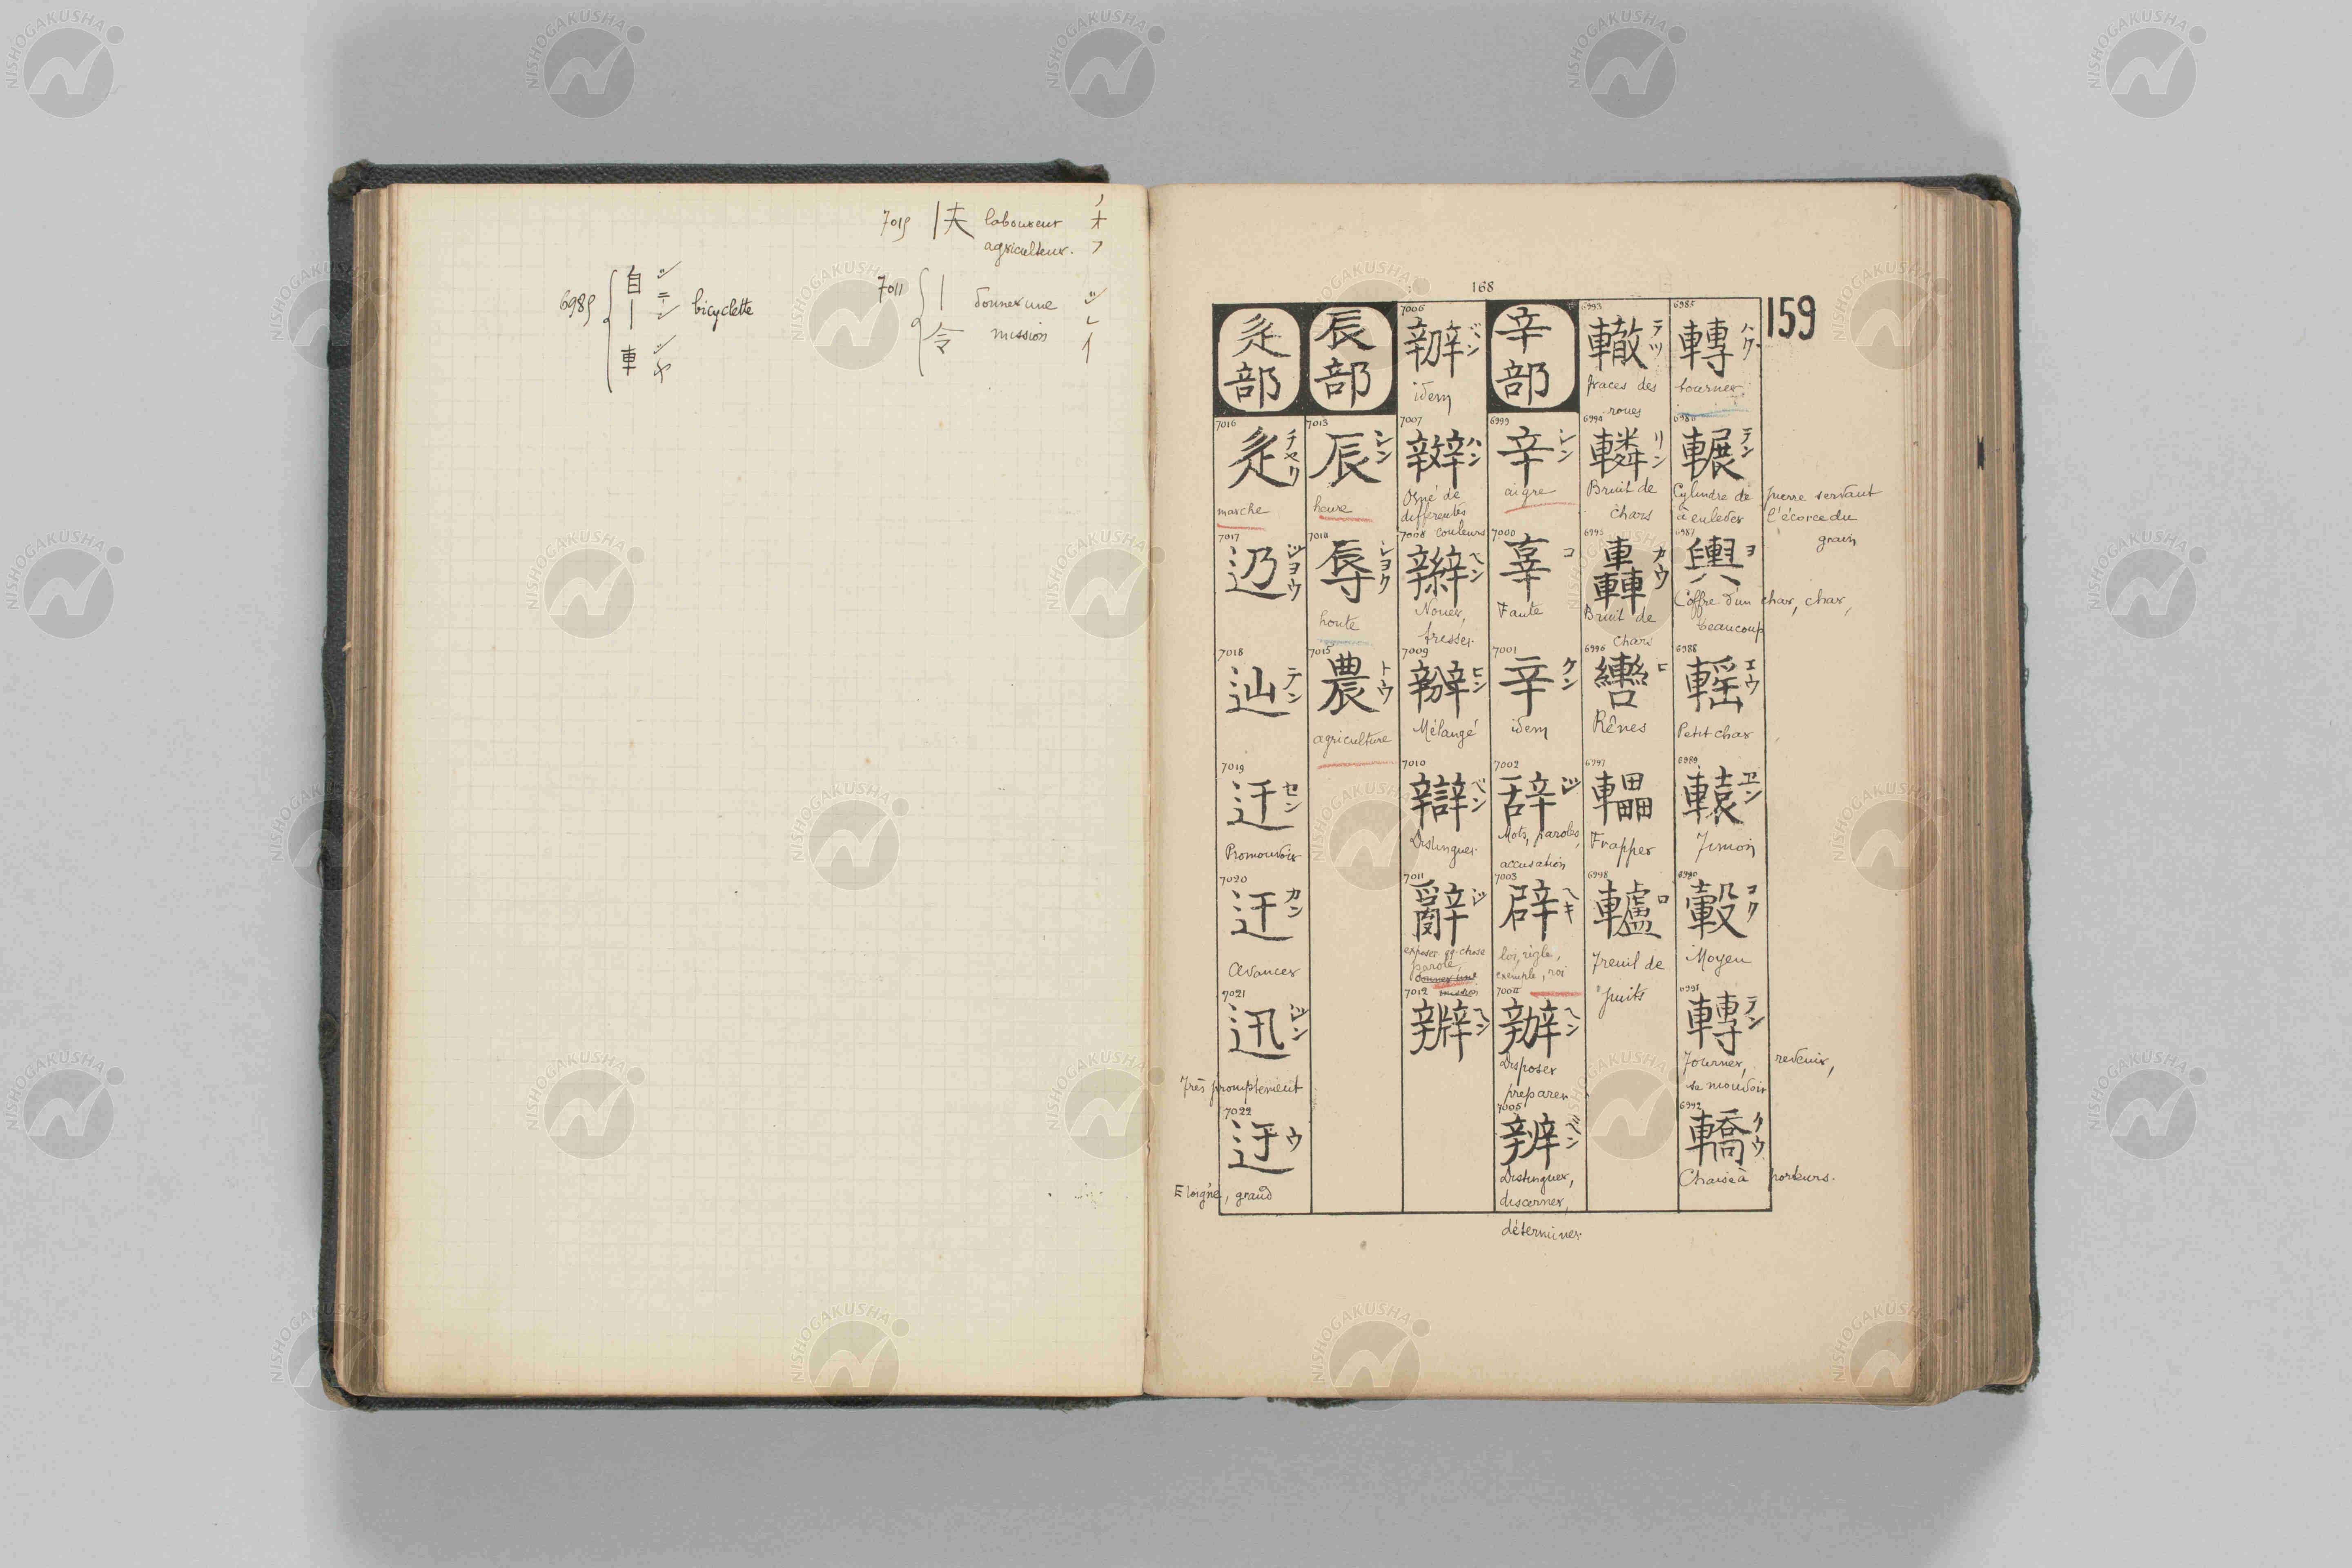 7015 | 夫 laboureur ノオフ
agriculteur.
6985 { 自 | 車 ジテンジヤ bicyclette
7011 { | 令 donner une ジレイ
mission
168
159
6985
轉 ハク
tourner
6986
輾 テン
Cylindre de pierre servant
à enlever l'écorce du
grain
6987
輿 ヨ
Coffre d'un char, char,
beaucoup
6988
轁 エウ
Petit char
6989
轅 ヱン
Timon
6990
轂 コク
Moyeu
6991
轉 テン
Tourner, revenir,
se mouvoir
6992
轎 ケウ
Chaise à porteurs.
6993
轍 テツ
traces des
roues
6994
轔 リン
Bruit de
chars
6995
轟 カウ
Bruit de
chars
6996
轡 ヒ
Rênes
6997
轠
Frapper
6998
轤 ロ
Treuil de
puits
辛部
6999
辛 シン
aigre
7000
辜 コ
Faute
7001
辛 ケン
idem
7002
辞 ジ
Mots, paroles,
accusation
7003
辟 ヘキ
loi, règle,
exemple, roi
7004
辦 ヘン
Disposer
preparer
7005
辨 ベン
Distinguer,
discerner,
déterminer
7006
辧 ベン
idem
7007
辬 ハン
Orné de
differentes
couleurs
7008
辮 ヘン
Nouer,
tresser
7009
辬 ヒン
Mélangé
7010
辯 ベン
Distinguer
7011
辭 ジ
exposer qq. chose
parole,
donner une
mission
7012
辨 ヘン
辰部
7013
辰 シン
heure
7014
辱 シヨク
honte
7015
農 トウ
agriculture
辵部
7016
辵 チヤク
marche
7017
辸 ジヨウ
7018
辿 テン
7019
迁 セン
Promouvoir
7020
迀 カン
Avancer
7021
迅 ジン
Très promptement
7022
迂 ウ
Eloigné, grand
NISHOGAKUSHA